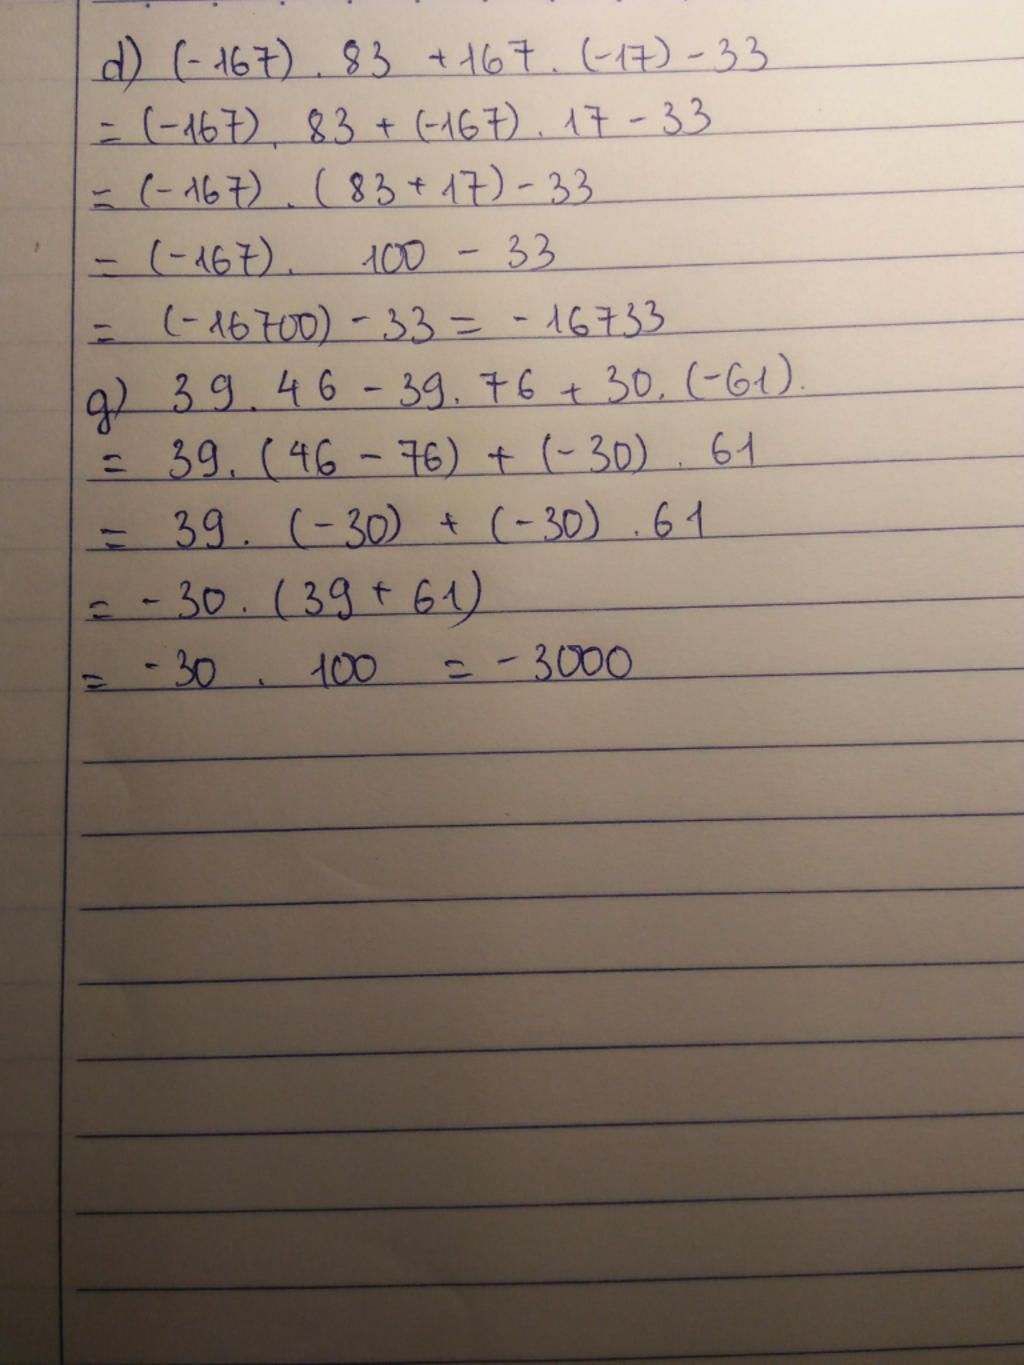 d) (-167) . 83 + 167 . (-17) - 33
= (-167) . 83 + (-167) . 17 - 33
= (-167) . (83 + 17) - 33
= (-167) . 100 - 33
= (-16700) - 33 = - 16733
g) 39 . 46 - 39 . 76 + 30 . (-61).
= 39 . (46 - 76) + (-30) . 61
= 39 . (-30) + (-30) . 61
= -30 . (39 + 61)
= -30 . 100 = -3000